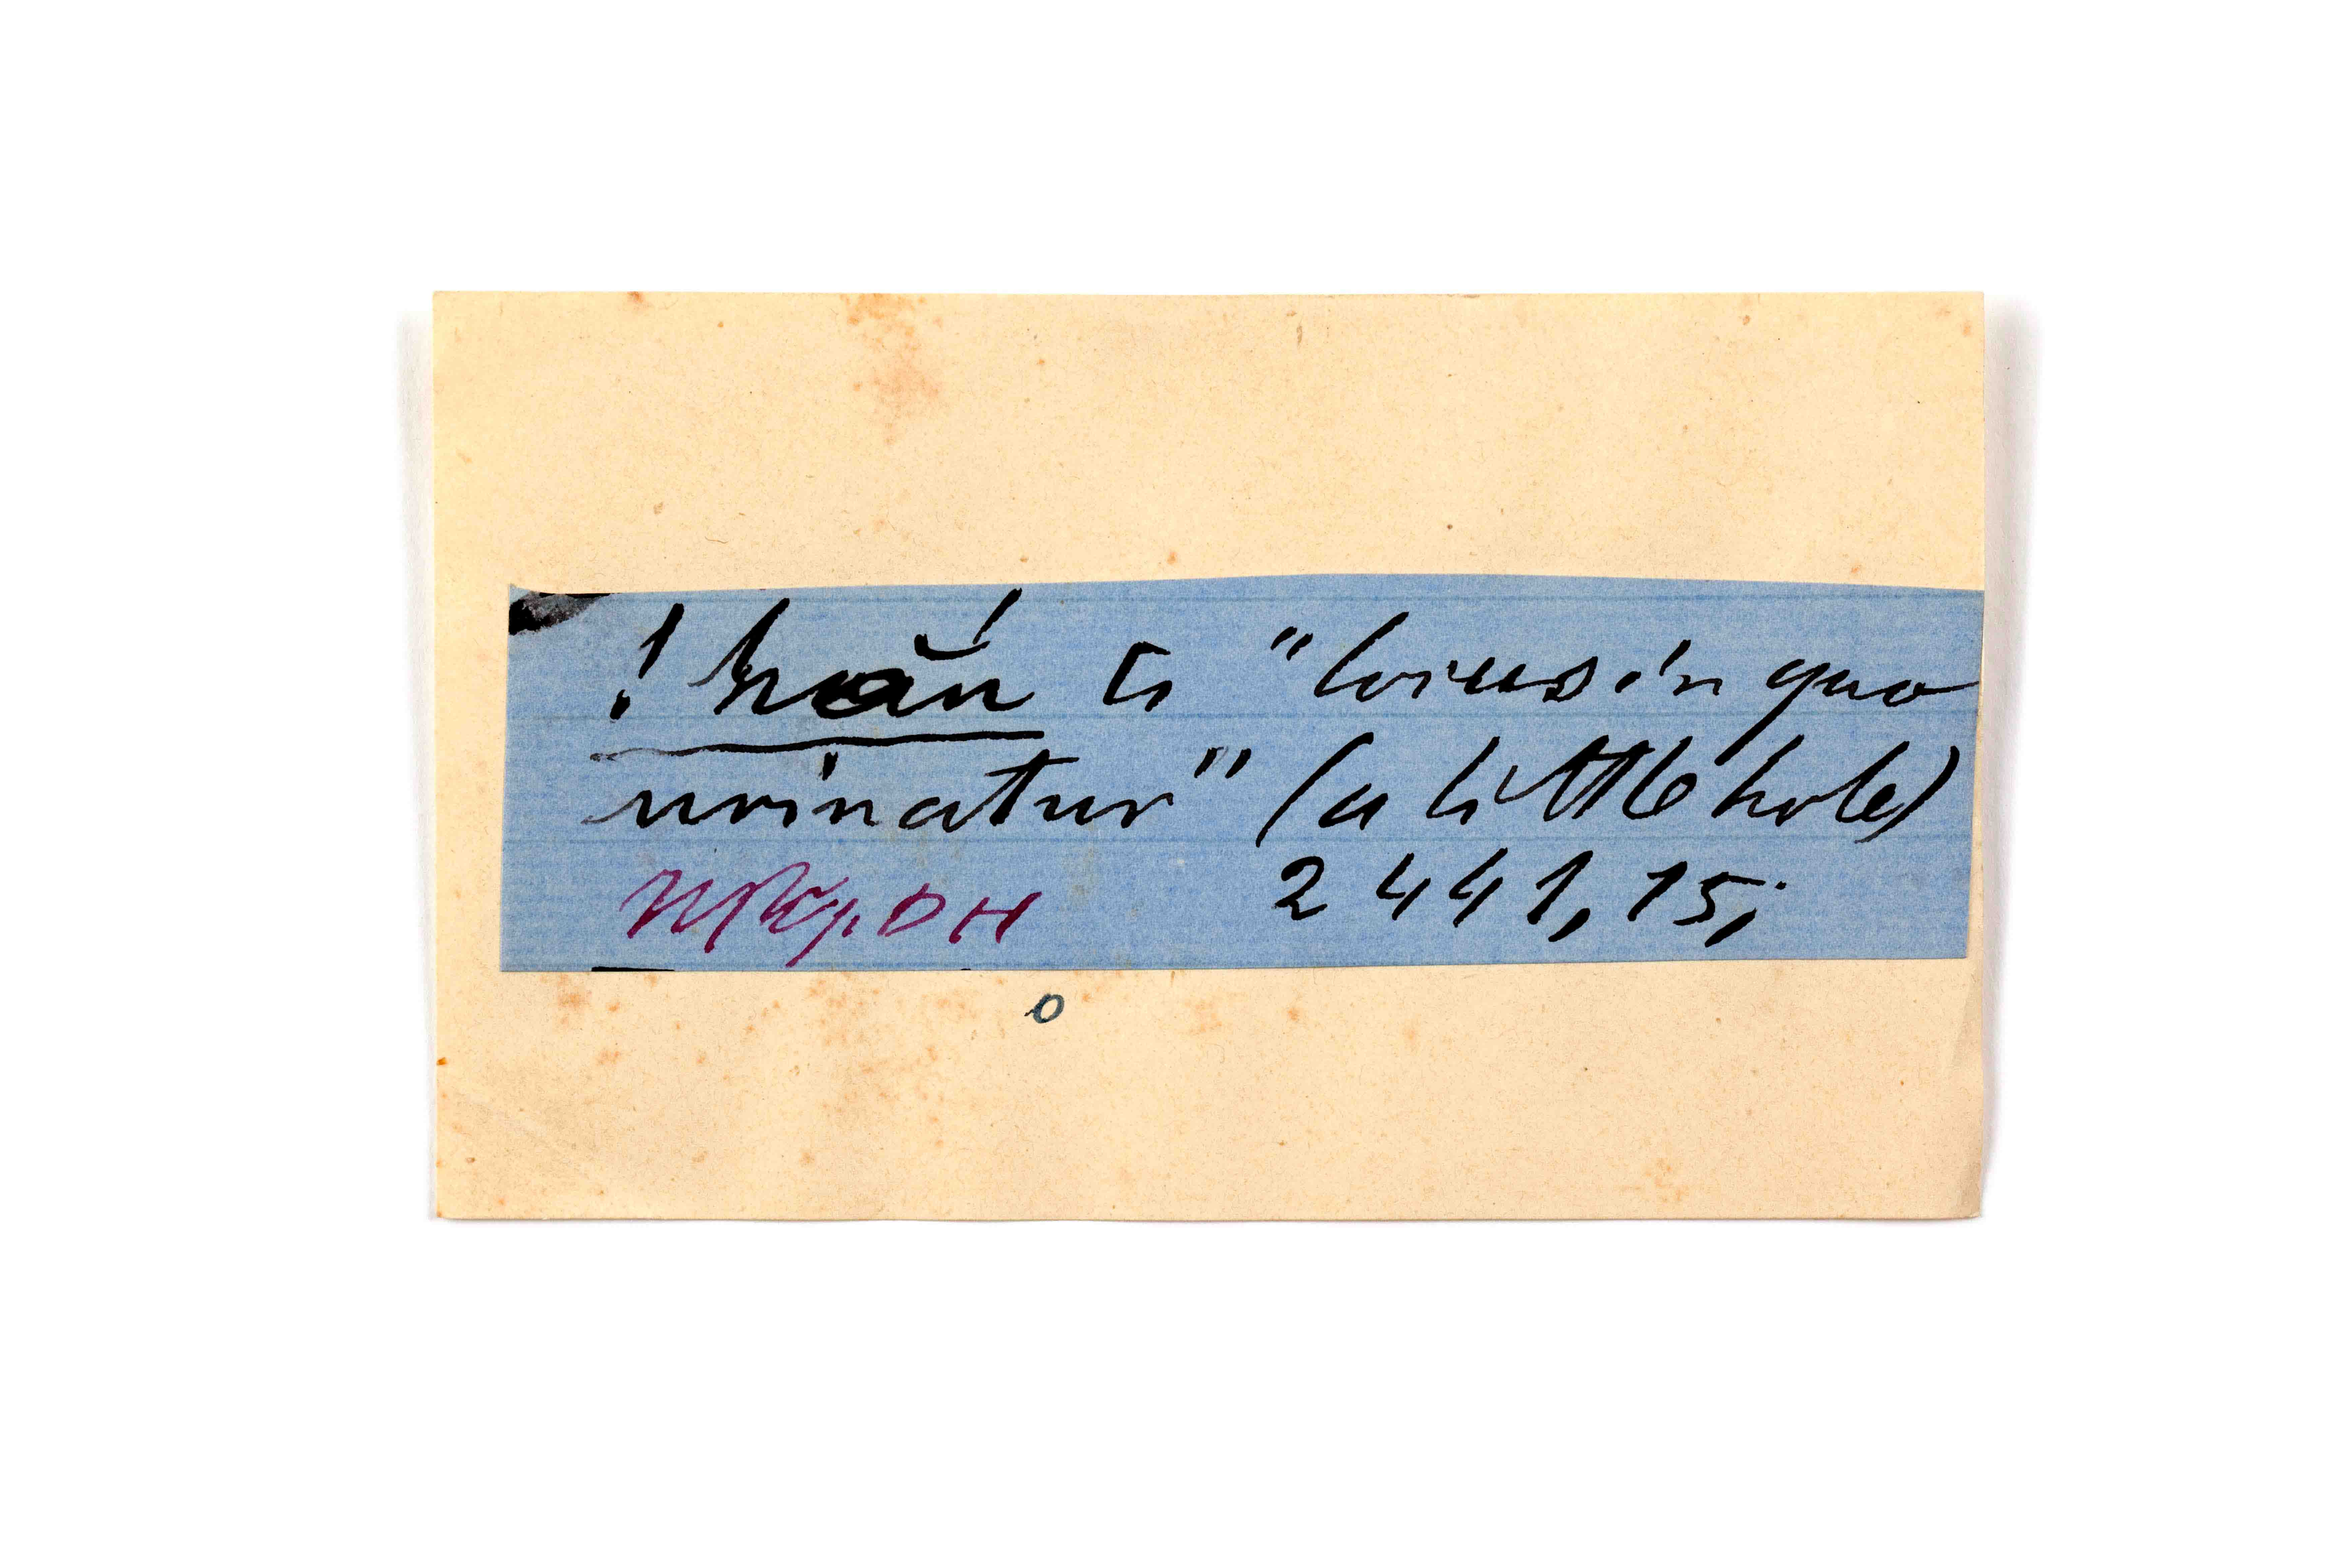 ! hŏắn ti "locus in quo
urinatur" (a little hole)
2441, 15;
o